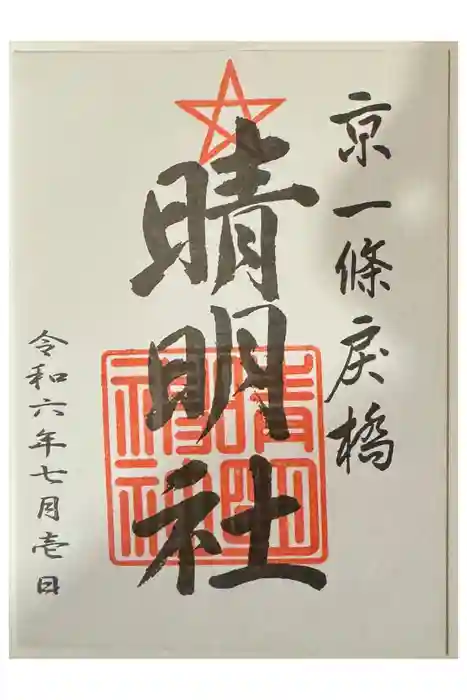 京一條戻橋
晴明社
晴明
神社
令和六年七月壱日